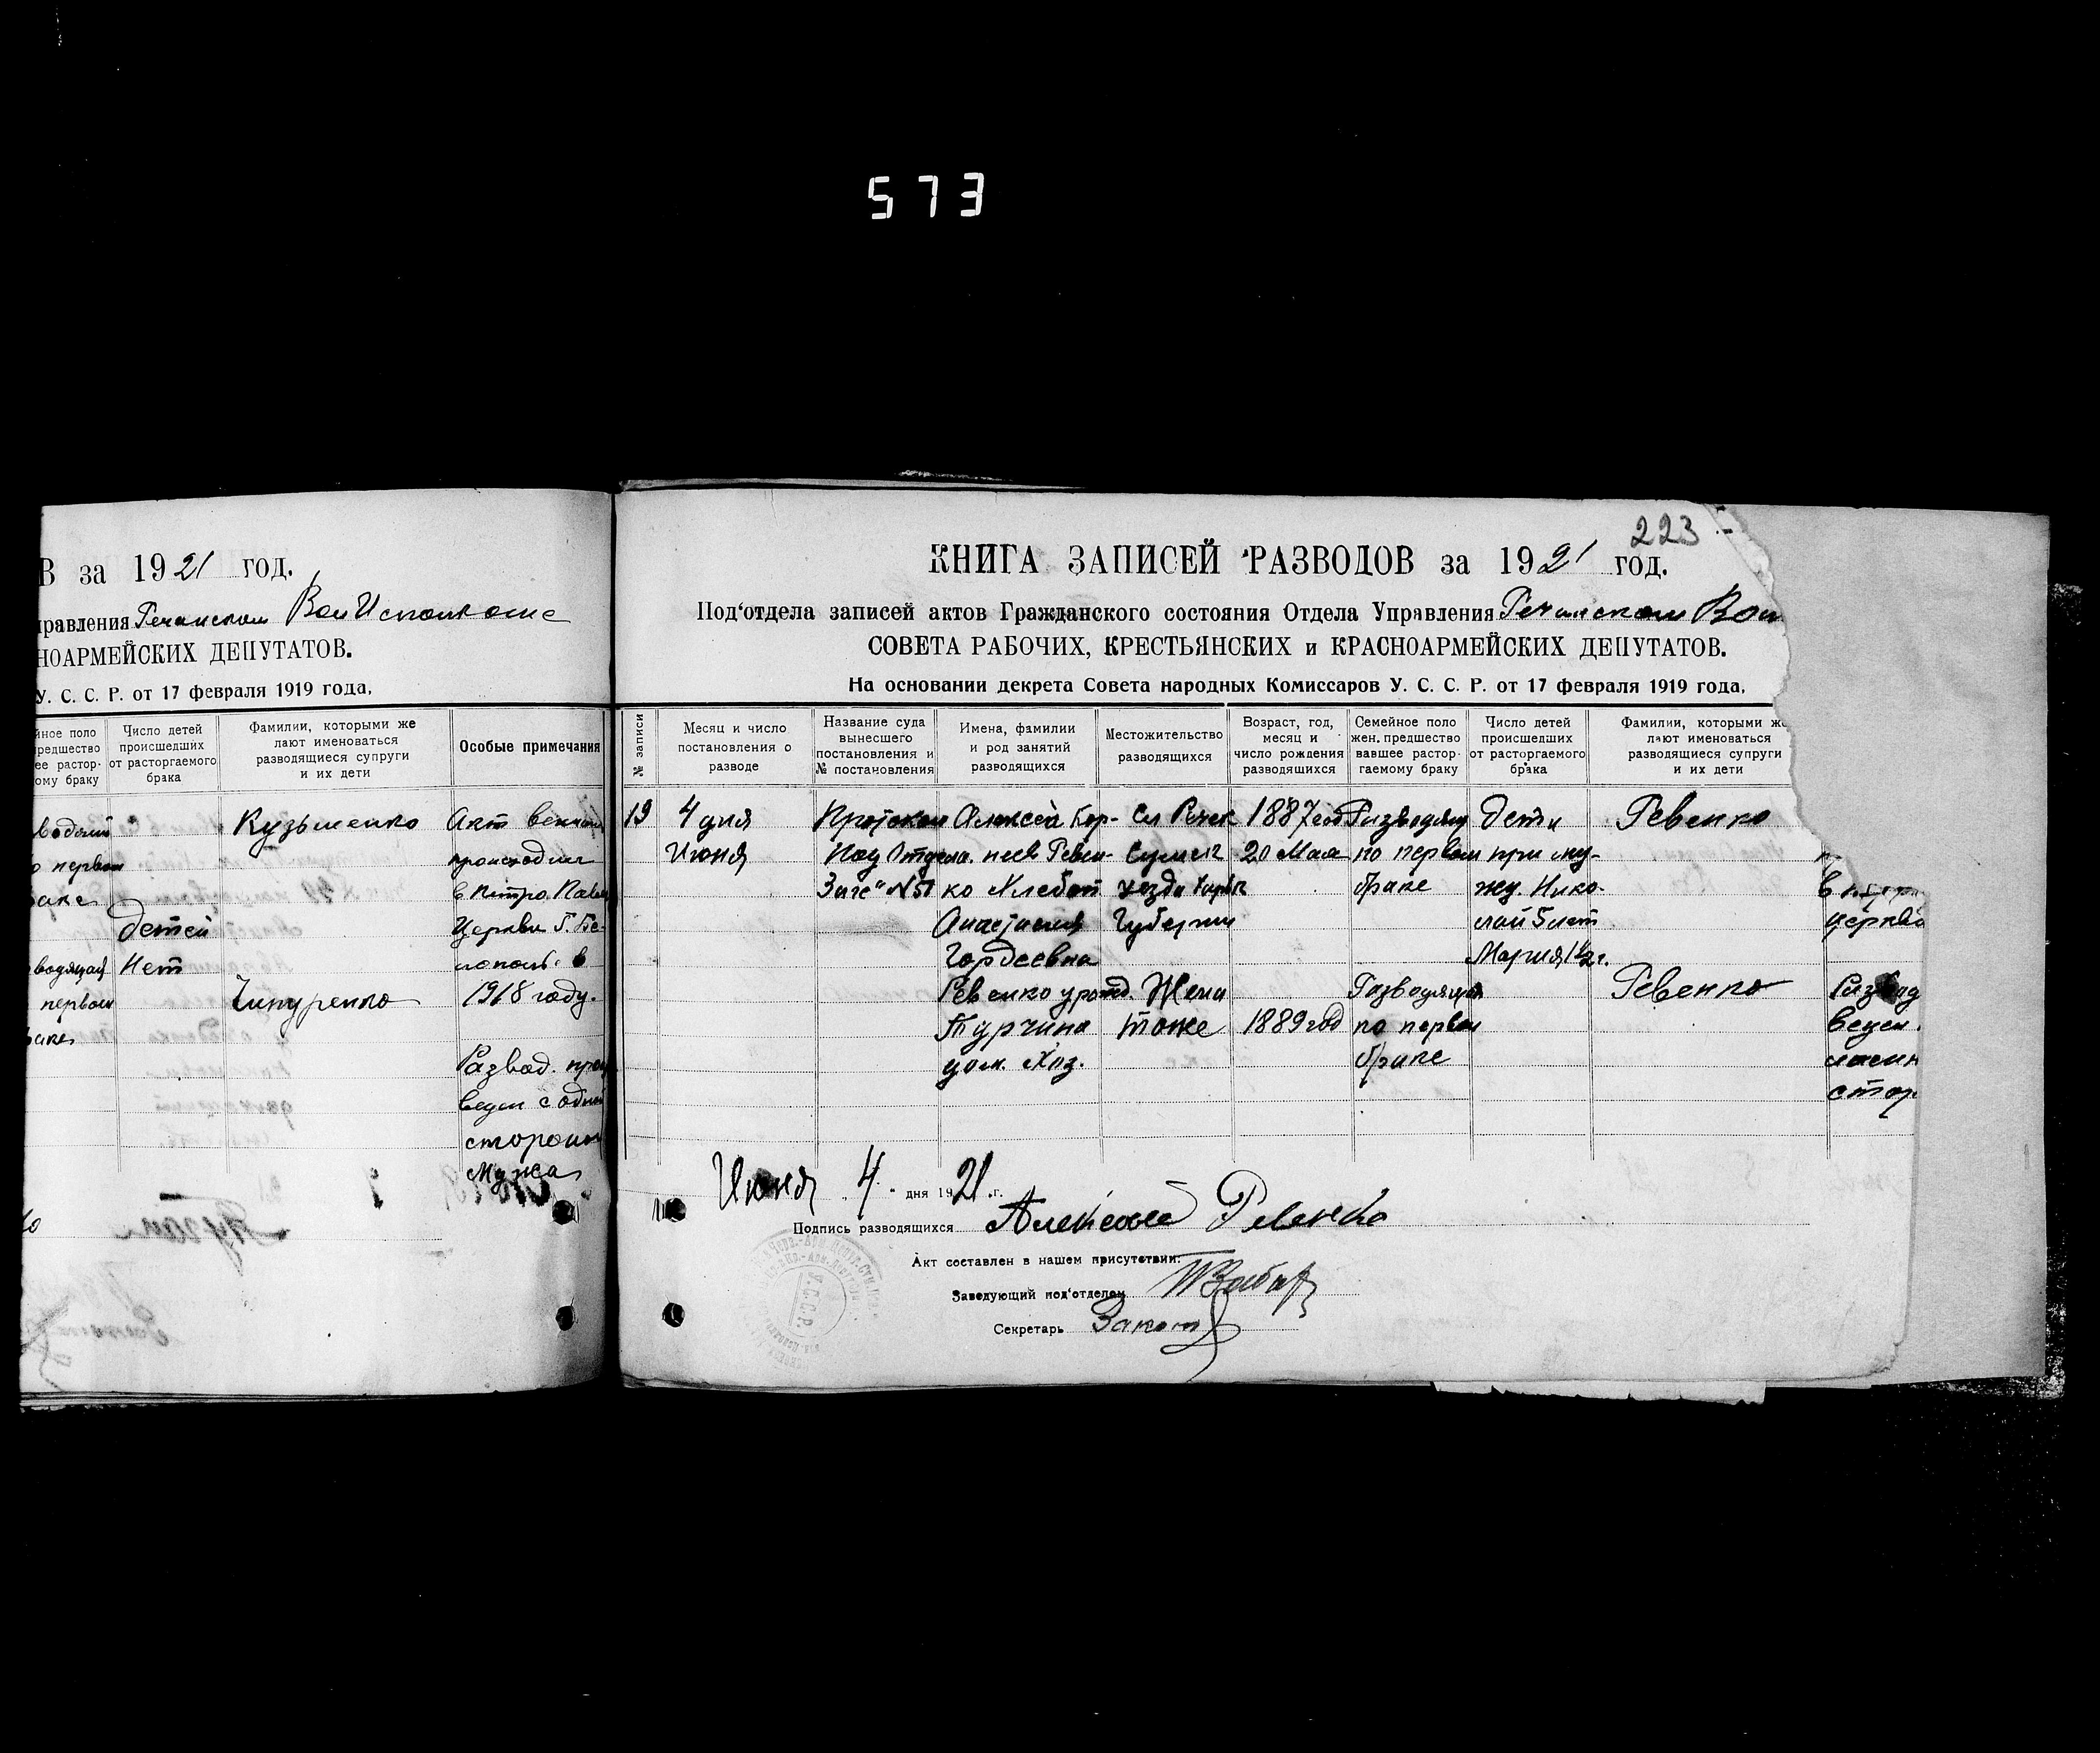 573
В за 1921 год.
правления Речанском ВолИсполкоме
НОАРМЕЙСКИХ ДЕПУТАТОВ.
У. С. С. Р. от 17 февраля 1919 года,
йное поло
редшество
ее растор-
ому браку
Число детей
происшедших
от расторгаемого
брака
Фамилии, которыми же
лают именоваться
разводящиеся супруги
и их дети
Особые примечания
водящий
о первом
браке
детей
Нет
водящая
первом
браке
Кузьменко
Чипуренко
Акт венчания
происходил
в Петро Павл
Церкви Г. Бе-
лополь в
1918 году.
Развод. прои
веден с одной
стороны
Мужа
223
КНИГА ЗАПИСЕЙ РАЗВОДОВ за 1921 год.
Под'отдела записей актов Гражданского состояния Отдела Управления Речанском Вол
СОВЕТА РАБОЧИХ, КРЕСТЬЯНСКИХ и КРАСНОАРМЕЙСКИХ ДЕПУТАТОВ.
На основании декрета Совета народных Комиссаров У. С. С. Р. от 17 февраля 1919 года,
№ записи
Месяц и число
постановления о
разводе
Название суда
вынесшего
постановления и
№ постановления
Имена, фамилии
и род занятий
разводящихся
Местожительство
разводящихся
Возраст, год,
месяц и
число рождения
разводящихся
Семейное поло
жен. предшество
вавшее растор-
гаемому браку
Число детей
происшедших
от расторгаемого
брака
Фамилии, которыми же
лают именоваться
разводящиеся супруги
и их дети
19
4 дня
Июня
Протокол
Под Отдела
Загс" № 51
Алексей Кор-
неев Ревен-
ко Хлебоп
Анастасия
Гордеевна
Ревенко урожд.
Турчина
дом. Хоз.
Сл Речек
Сумск
уезда Харьк
Губернии
Жена
тоже
1887 год
20 Мая
1889 год
Разводящ
по первом
браке
Разводящая
по первом
браке
Дети
при му-
жу. Нико-
лай 5 лет
Мария 1 1/2 г.
Ревенко
Ревенко
церкво
Развод
веден
стор
Июня „4" дня 1921 г.
Подпись разводящихся Алексей Ревенко
Акт составлен в нашем присутствии:
Заведующий под'отделом
Секретарь
У.С.С.Р.